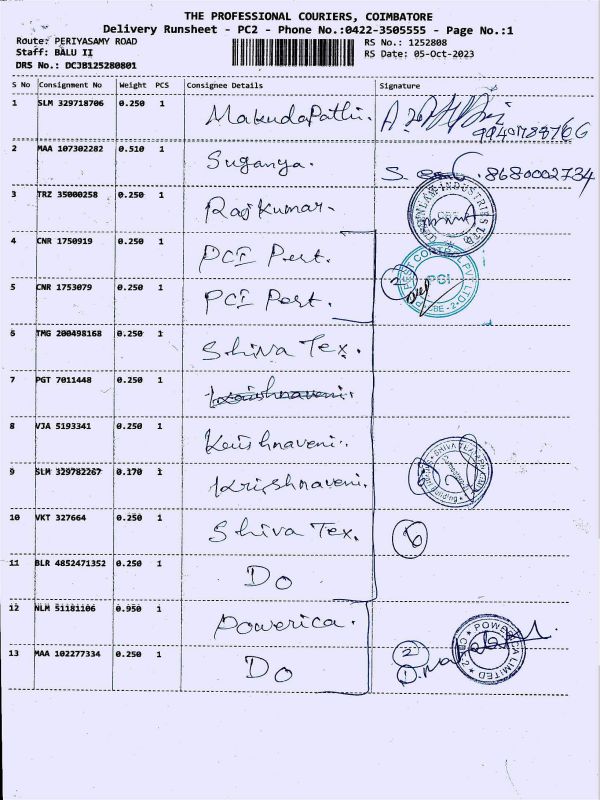 THE PROFESSIONAL COURIERS, COIMBATORE
Delivery Runsheet - PC2 - Phone No.:0422-3505555 - Page No.:1
Route: PERIYASAMY ROAD
Staff: BALU II
DRS No.: DCJB125280801
RS No.: 1252808
RS Date: 05-Oct-2023
S No Consignment No Weight PCS Consignee Details Signature
1 SLM 329718706 0.250 1 MakudaPathi.
9940788766
2 MAA 107302282 0.510 1 Suganya. S. 8680002734
3 TRZ 35000258 0.250 1 Rajkumar.
INDUSTRIES LTD
4 CNR 1750919 0.250 1 PCI Pest.
5 CNR 1753079 0.250 1 PCI Pest. 2
PEST CONTROL PVT LTD
PCI
CBE - 2
6 TMG 200498168 0.250 1 Shiva Tex.
7 PGT 7011448 0.250 1 Krishnaveni.
8 VJA 5193341 0.250 1 Krishnaveni.
9 SLM 329782267 0.170 1 Krishnaveni.
10 VKT 327664 0.250 1 Shiva Tex. 6
11 BLR 4852471352 0.250 1 Do
12 NLM 51181106 0.950 1 Powerica.
POWERICA LIMITED
CBE-2
13 MAA 102277334 0.250 1 Do 2